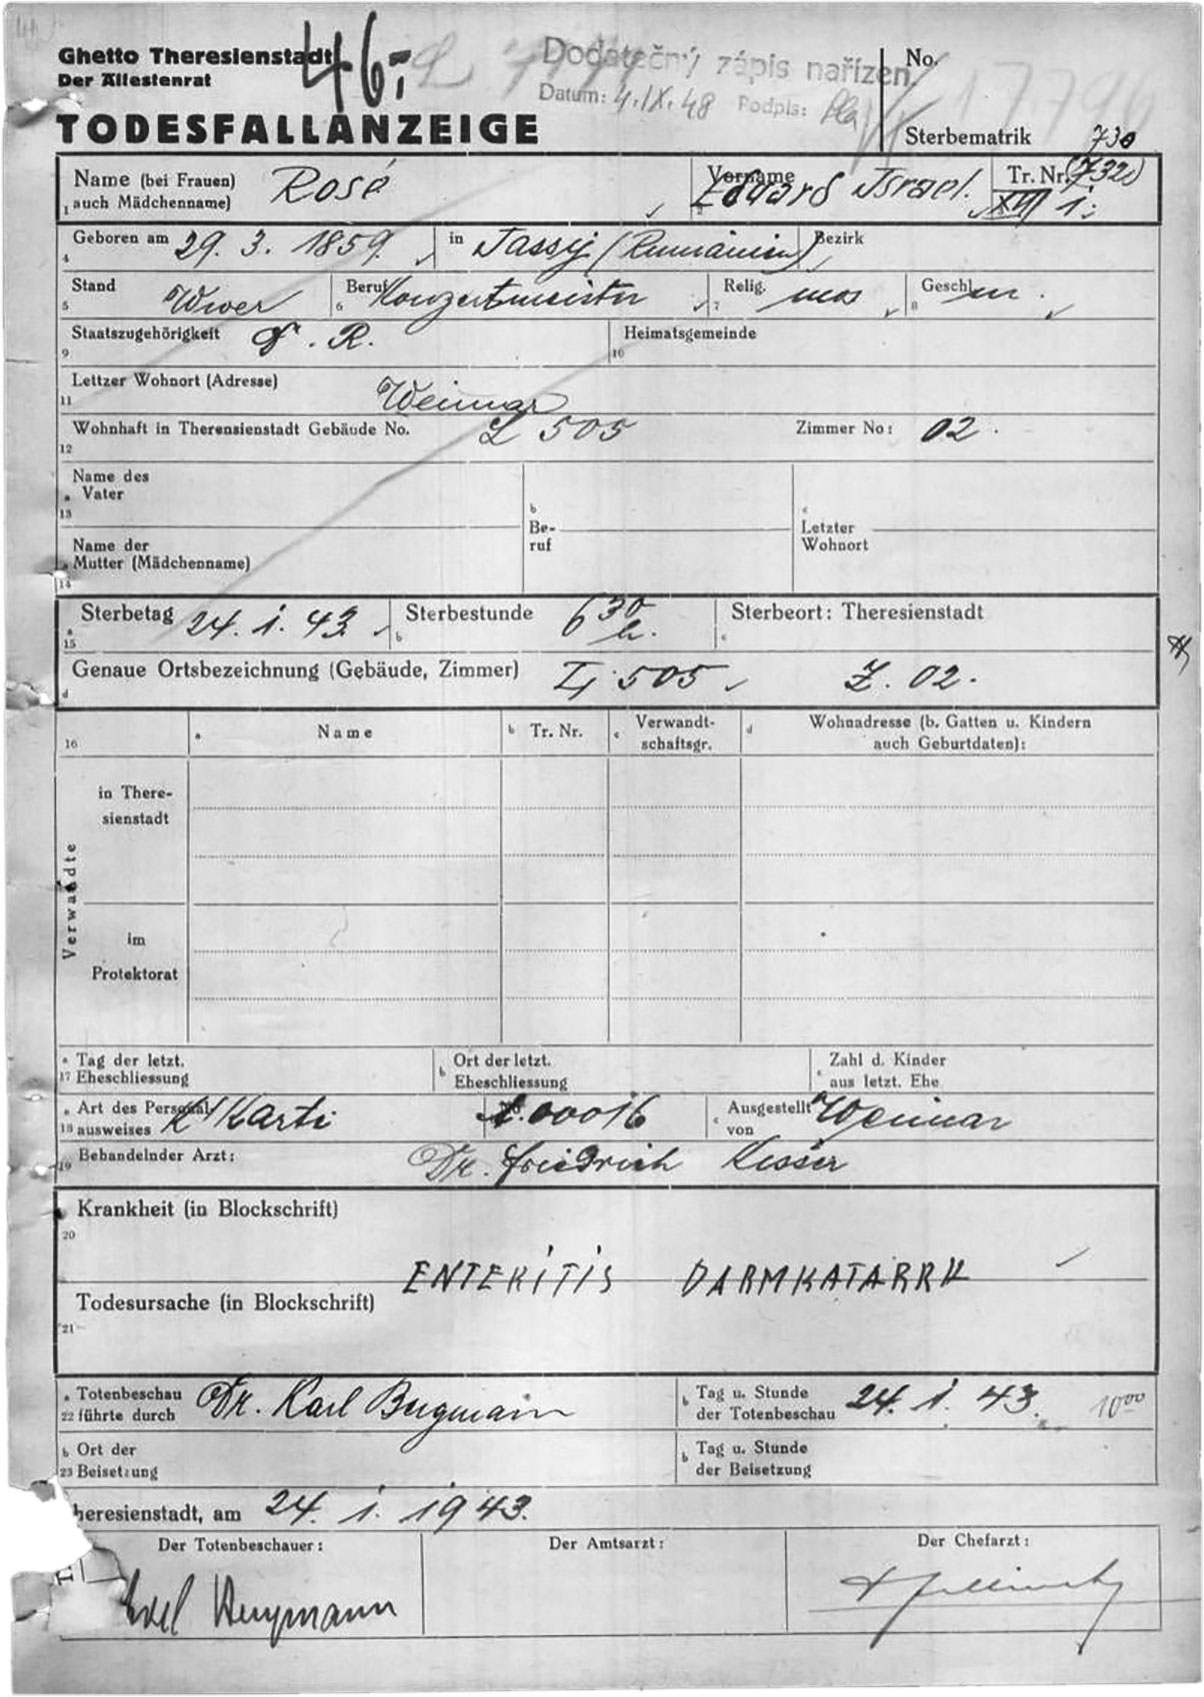 Ghetto Theresienstadt
Der Ältestenrat
46.-
Dodatečný zápis nařízen.
Datum: 4. IX. 48 Podpis:
No.
17796
TODESFALLANZEIGE
Sterbematrik 730
Name (bei Frauen) auch Mädchenname) Rosé
1
Vorname Eduard Israel.
2
Tr. Nr. (732)
XVI/1
3
4 Geboren am 29. 3. 1859. in Jassy (Rumänien) Bezirk
5 Stand Wwer
6 Beruf Konzertmeister
7 Relig. mos
8 Geschl. m.
9 Staatszugehörigkeit D. R.
10 Heimatsgemeinde
11 Lettzer Wohnort (Adresse) Weimar
12 Wohnhaft in Therensienstadt Gebäude No. L 505 Zimmer No: 02.
a 13 Name des Vater
b Beruf
c Letzter Wohnort
a 14 Name der Mutter (Mädchenname)
a 15 Sterbetag 24. 1. 43.
b Sterbestunde 6 30 h.
c Sterbeort: Theresienstadt
d Genaue Ortsbezeichnung (Gebäude, Zimmer) L 505 Z. 02.
16 a Name b Tr. Nr. c Verwandt-
schaftsgr. d Wohnadresse (b. Gatten u. Kindern
auch Geburtdaten):
Verwandte
in There-
sienstadt
im
Protektorat
a 17 Tag der letzt. Eheschliessung
b Ort der letzt. Eheschliessung
c Zahl d. Kinder aus letzt. Ehe
a 18 Art des Personal- ausweises K'Karte
b No. A.00016
c Ausgestellt von Weimar
19 Behandelnder Arzt: Dr. Friedrich
Krankheit (in Blockschrift)
20
ENTERITIS DARMKATARRH
Todesursache (in Blockschrift)
21
a 22 Totenbeschau führte durch Dr. Karl Bergmann
b Tag u. Stunde der Totenbeschau 24. 1. 43. 10 00
b 23 Ort der Beisetzung
b Tag u. Stunde der Beisetzung
heresienstadt, am 24. 1. 1943.
Der Totenbeschauer: Der Amtsarzt: Der Chefarzt:
Karl Bergmann